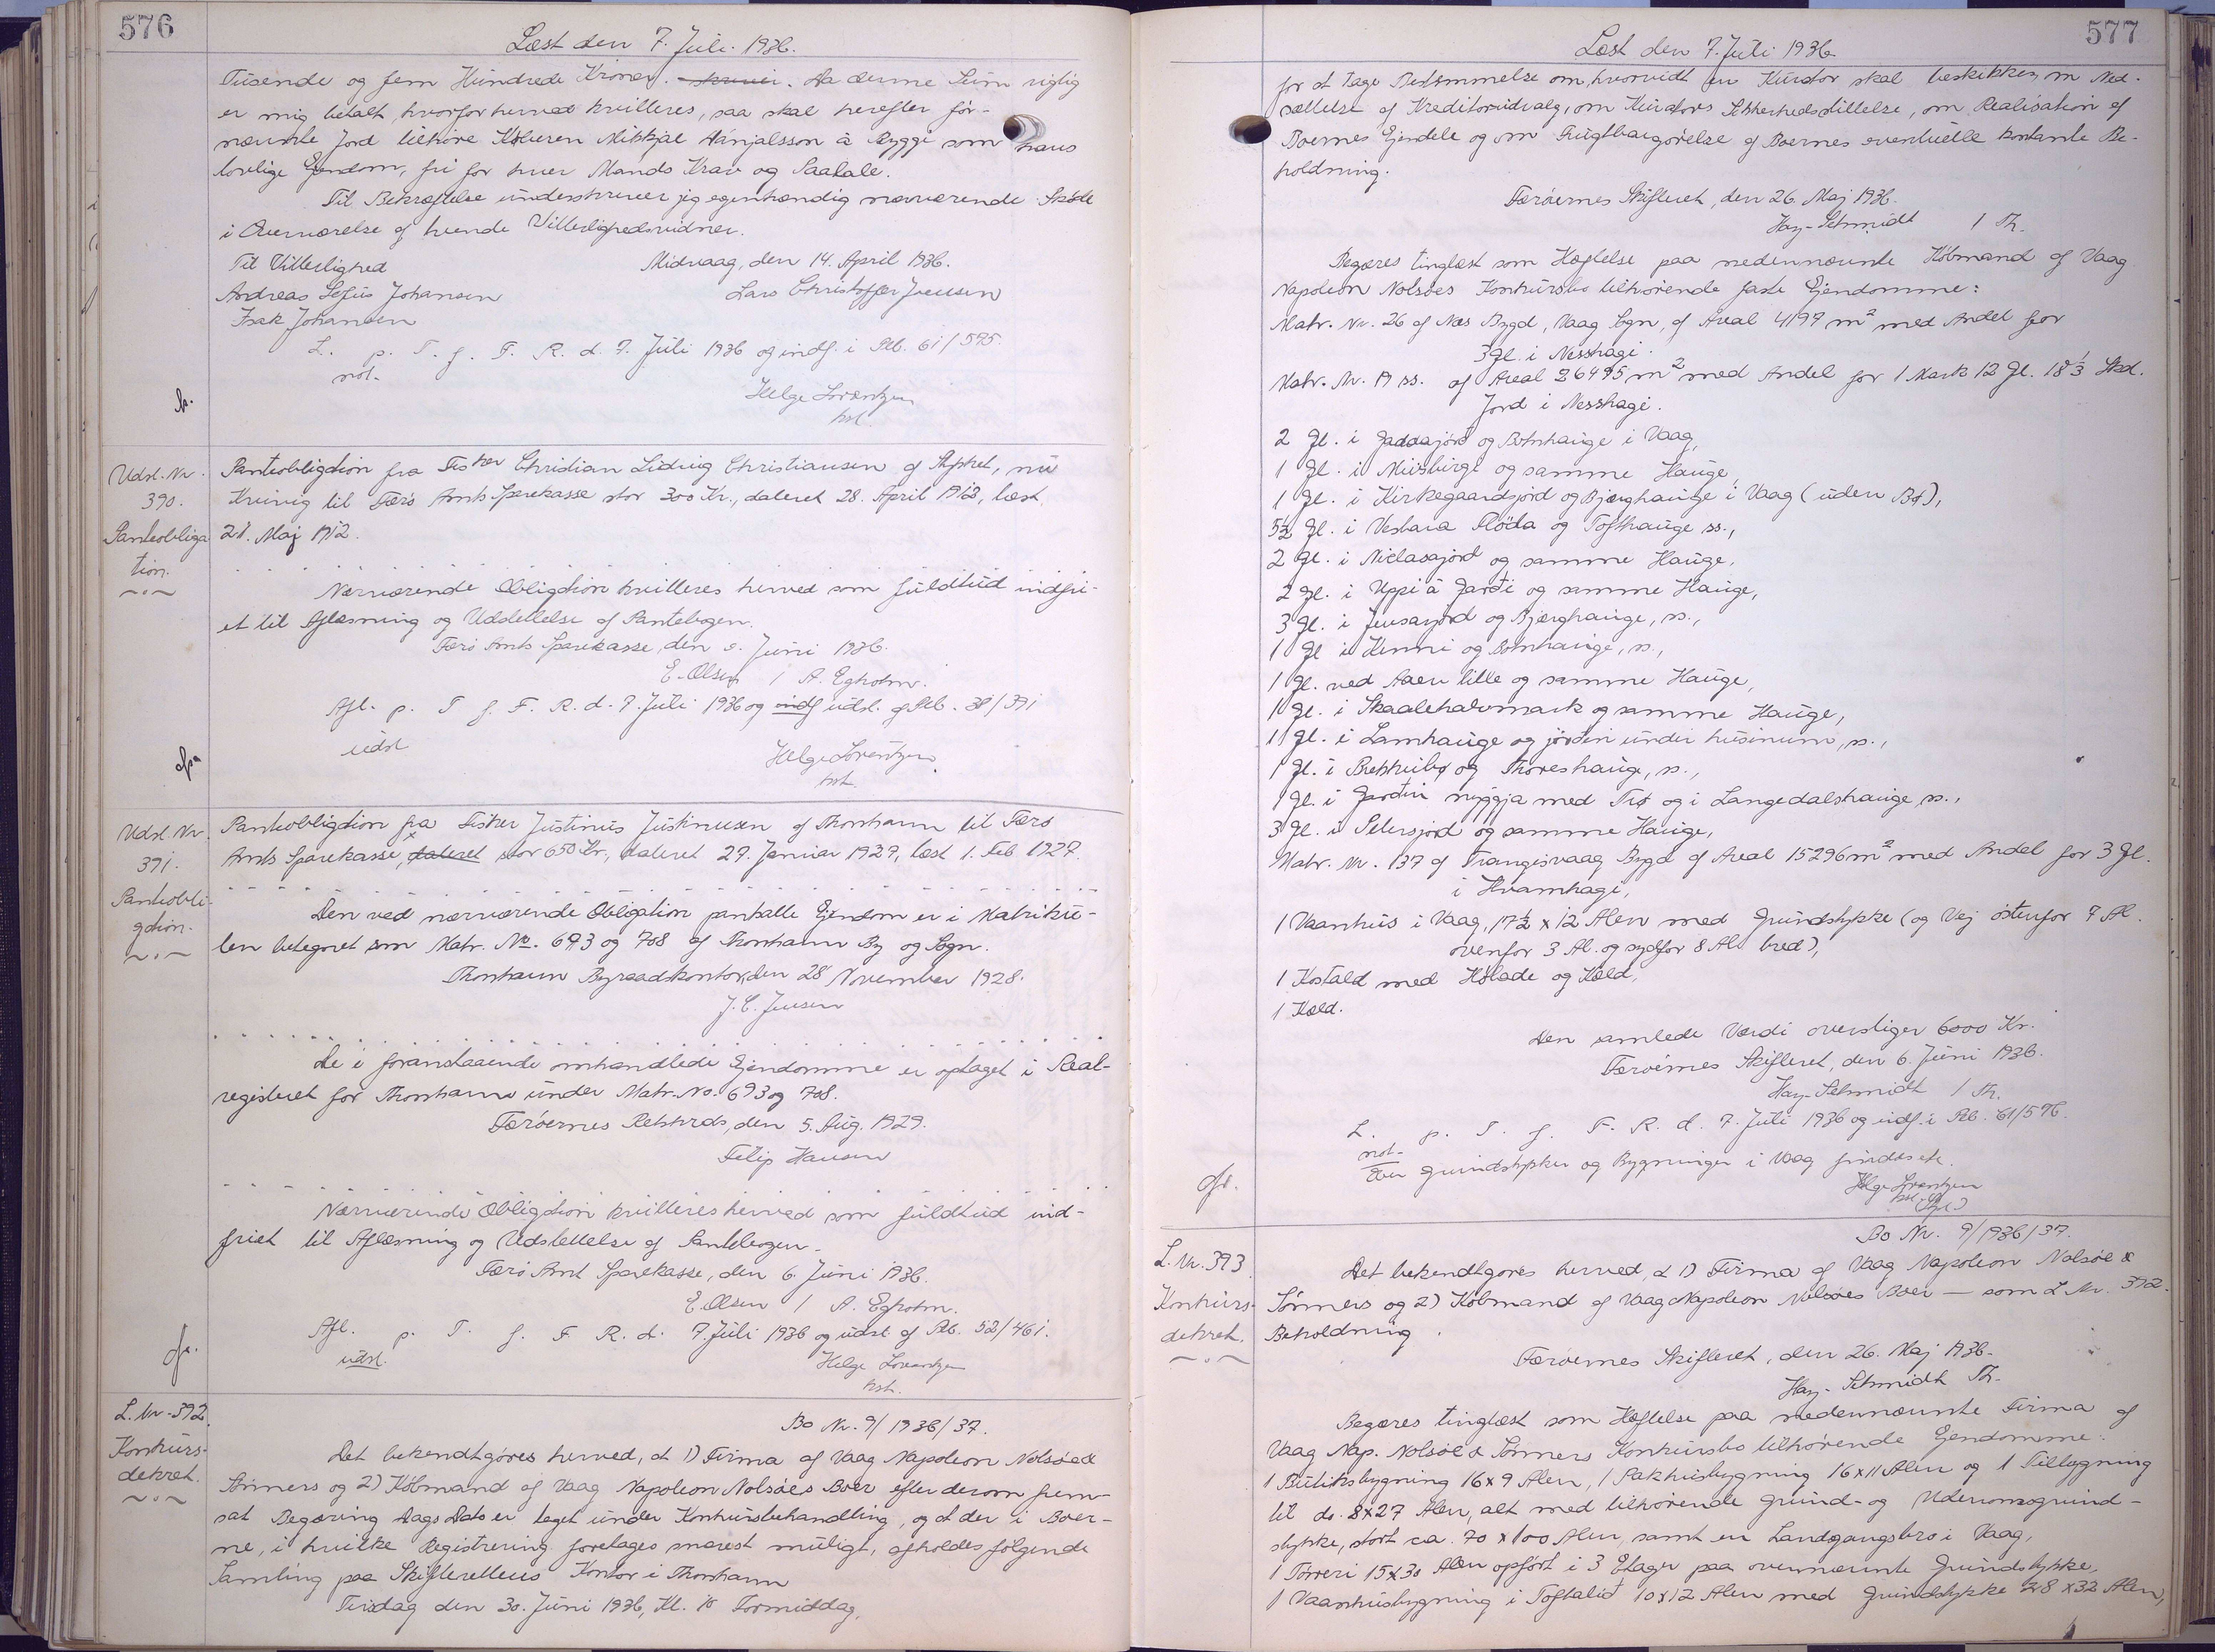 576
Læst den 7. Juli 1936.
Tusende og fem Hundrede Kroner. Da denne Sum rigtig
er mig betalt, hvorfor herved kvitteres, saa skal herefter før-
nævnte Jord tilhøre Køberen Mikkjal Hánjalsson á Ryggi som hans
lovlige Ejendom, fri for hver Mands Krav og Paatale.
Til Bekræftelse underskriver jeg egenhændig nærværende Skøde
i Overværelse af hvende Vitterlighedsvidner.
Til Vitterlighed
Midvaag, den 14. April 1936.
Andreas Sefus Johansen
Lars Christoffer Joensen
Isak Johansen
L. p. T. f. F. R. d. 7. Juli 1936 og indf. i Ptb. 61/575.
not.
Helge Lorentzen
kst.
Udsl. Nr.
390.
Pantobliga
tion.
Pantobligation fra Fisker Christian Ludvig Christiansen af , nu
Kunivig til Færø Amts Sparekasse stor 300 Kr., dateret 28. April 1912, læst
21. Maj 1912.
Nærværende Obligation kvitteres herved som fuldtud indfri-
et til Aflæsning og Udslettelse af Pantebogen.
Færø Amts Sparekasse, den 2. Juni 1936.
E. Olsen / A. Egholm.
Afl. p. T. f. F. R. d. 7. Juli 1936 og indf udsl. af Ptb. 38/391
udsl
Helge Lorentzen
kst.
Udsl. Nr.
391.
Pantobli-
gation.
Pantobligation fra Fisker Justinus Justinussen af Thorshavn til Færø
Amts Sparekasse, dateret stor 650 Kr., dateret 29. Januar 1927, læst 1. Feb 1927.
Den ved nærværende Obligation pantsatte Ejendom er i Matriku-
len betegnet som Matr. No. 693 og 708 af Thorshavn By og Sogn.
Thorshavn Byraadskontor, den 28 November 1928.
J. C. Juesen
De i foranstaaende omhandlede Ejendomme er optaget i Real-
registeret for Thorshavn under Matr. No. 693 og 708.
Færøernes Retskreds, den 5. Aug. 1929.
Filip Hansen
Nærværende Obligation kvitteres herved som fuldtud ind-
friet til Aflæsning og Udslettelse af Pantebogen.
Færø Amt Sparekasse, den 6. Juni 1936.
E. Olsen / A. Egholm.
Afl. p. T. f. F. R. d. 7. Juli 1936 og udsl. af Ptb. 52/461.
udsl.
Helge Lorentzen
kst.
L. Nr. 392
Konkurs-
dekret.
Bo Nr. 9/1936/37.
Det bekendtgøres herved, at 1) Firma af Vaag Napoleon Nolsøe &
Sønners og 2) Købmand af Vaag Napoleon Nolsøes Boer efter derom frem-
sat Begæring Dags Dato er taget under Konkursbehandling, og at der i Boer-
ne, i hvilke Registrering foretages snarest muligt, afholdes følgende
Samling paa Skifterettens Kontor i Thorshavn
Tirsdag den 30. Juni 1936, Kl. 10 Formiddag,
577
Læst den 7. Juli 1936
for at tage Bestemmelse om, hvorvidt en Kurator skal beskikkes, om Ned-
sættelse af Kreditorudvalg, om Kurators Sikkerhedsstillelse, om Realisation af
Boernes Ejendele og om Frugtbargørelse af Boernes eventuelle kontante Be-
holdning.
Færøernes Skifteret, den 26. Maj 1936.
Hay-Schmidt / Th.
Begæres tinglæst som Hæftelse paa nedennævnte Købmand af Vaag
Napoleon Nolsøes Konkursbo tilhørende faste Ejendomme:
Matr. Nr. 26 af Næs Bygd, Vaag Sogn, af Areal 4197 m² med Andel for
3 Gl. i Nesshagi.
Matr. Nr. 19 ss. af Areal 26495 m² med Andel for 1 Mark 12 Gl. 18 1/3 Skd.
Jord i Nesshagi.
2 Gl. i Gaddajörd og Botnhauge i Vaag,
1 Gl. i Miðsbirgi og samme Hauge,
1 Gl. i Kirkegaardsjord og Bjørghauge i Vaag (uden Bø),
5½ Gl. i Vestara Fløda og Tofthauge ss.,
2 Gl. i Niclasajørd og samme Hauge,
2 Gl. i Uppi á Garði og samme Hauge,
3 Gl. i Jensajørd og Bjørghauge, ss.,
1 Gl. i Kinni og Botnhauge, ss.,
1 Gl. ved Aaen lille og samme Hauge,
1 Gl. i Skaalehalvmark og samme Hauge,
1 Gl. i Lamhauge og jørdin undir húsinum, ss.,
1 Gl. i Brekkubø og Thoreshauge, ss.,
1 Gl. i Garðin nyggja med Trø og i Langedalshauge, ss.,
3 Gl. i Petersjord og samme Hauge,
Matr. Nr. 137 af Trangisvaag Bygd af Areal 15296 m² med Andel for 3 Gl.
i Hvamhagi,
1 Vaanhus i Vaag, 17½ x 12 Alen med Grundstykke (og Vej østenfor 7 Al.
ovenfor 3 Al. og sydfor 8 Al. bred),
1 Kostald med Hølade og Kæld,
1 Kæld.
Den samlede Værdi overstiger 6000 Kr.
Færøernes Skifteret, den 6. Juni 1936.
Hay-Schmidt / Th.
L. p. T. f. F. R. d. 7. Juli 1936 og indf. i Ptb. 61/576.
not.
Grundstykker og Bygninger i Vaag findes ik.
Helge Lorentzen
kst.
L. Nr. 393
Konkurs-
dekret.
Bo Nr. 9/1936/37.
Det bekendtgøres herved, at 1) Firma af Vaag Napoleon Nolsøe &
Sønners og 2) Købmand af Vaag Napoleon Nolsøes Boer — som L Nr. 392.
Beholdning.
Færøernes Skifteret, den 26. Maj 1936.
Hay-Schmidt Th.
Begæres tinglæst som Hæftelse paa nedennævnte Firma af
Vaag Nap. Nolsøe & Sønners Konkursbo tilhørende Ejendomme:
1 Butiksbygning 16 x 9 Alen, 1 Pakhusbygning 16 x 11 Alen og 1 Tilbygning
til do. 8 x 27 Alen, alt med tilhørende Grund- og Udenomsgrund-
stykke, stort ca. 70 x 100 Alen, samt en Landgangsbro i Vaag,
1 Tørreri 15 x 30 Alen opført i 3 Etager paa ovennævnte Grundstykke,
1 Vaanhusbygning i Toftalið 10 x 12 Alen med Grundstykke 28 x 32 Alen,